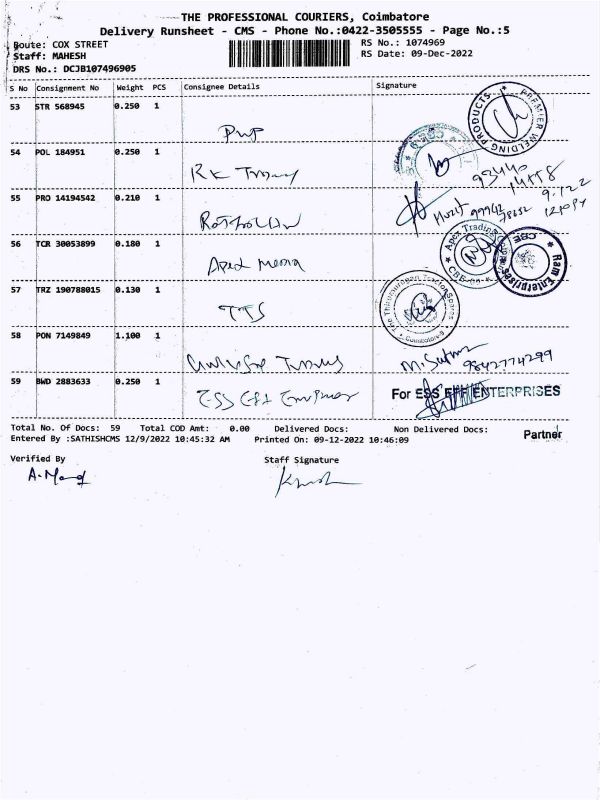 THE PROFESSIONAL COURIERS, Coimbatore
Delivery Runsheet - CMS - Phone No.:0422-3505555 - Page No.:5
Route: COX STREET
RS No.: 1074969
Staff: MAHESH
RS Date: 09-Dec-2022
DRS No.: DCJB107496905
S No Consignment No Weight PCS Consignee Details Signature
53 STR 568945 0.250 1
PREMIER WELDING PRODUCTS
54 POL 184951 0.250 1
RK
93440
14858
55 PRO 14194542 0.210 1
9.122
78652 1210PY
56 TCR 30053899 0.180 1
Apex Trading
CBE
Apex
Ram Enterprises
CBE
57 TRZ 190788015 0.130 1
TTS
The Thirumurugan Tractor Spares
Coimbatore
58 PON 7149849 1.100 1
9842774299
59 BWD 2883633 0.250 1
ESS Eff Enterprises
For ESS EFF ENTERPRISES
Total No. Of Docs: 59 Total COD Amt: 0.00 Delivered Docs: Non Delivered Docs:
Partner
Entered By :SATHISHCMS 12/9/2022 10:45:32 AM Printed On: 09-12-2022 10:46:09
Verified By Staff Signature